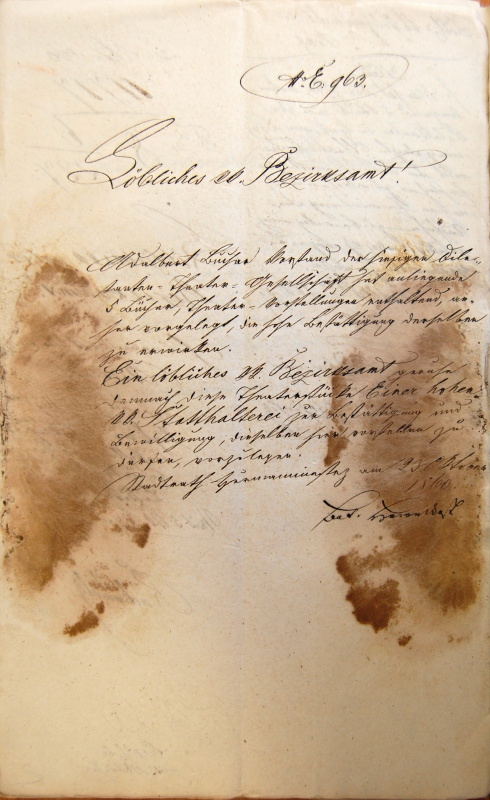 No E. 963.
Löbliches k.k. Bezirksamt!
Adalbert Bucher Vorstand der hiesigen Dile-
tanten-Theater-Gesellschaft hat anliegende
5 Bücher, Theater-Vorstellungen enthaltend, an-
her vorgelegt, die hohe Bestättigung derselben
zu erwirken.
Ein löbliches k.k. Bezirksamt geruhe
demnach diese Theaterstücke Einer hohen
k.k. Statthalterei zur Bestättigung und
Bewilligung, dieselben hier vorstellen zu
dürfen, vorzulegen.
Stadtrath Hermanmiestez am